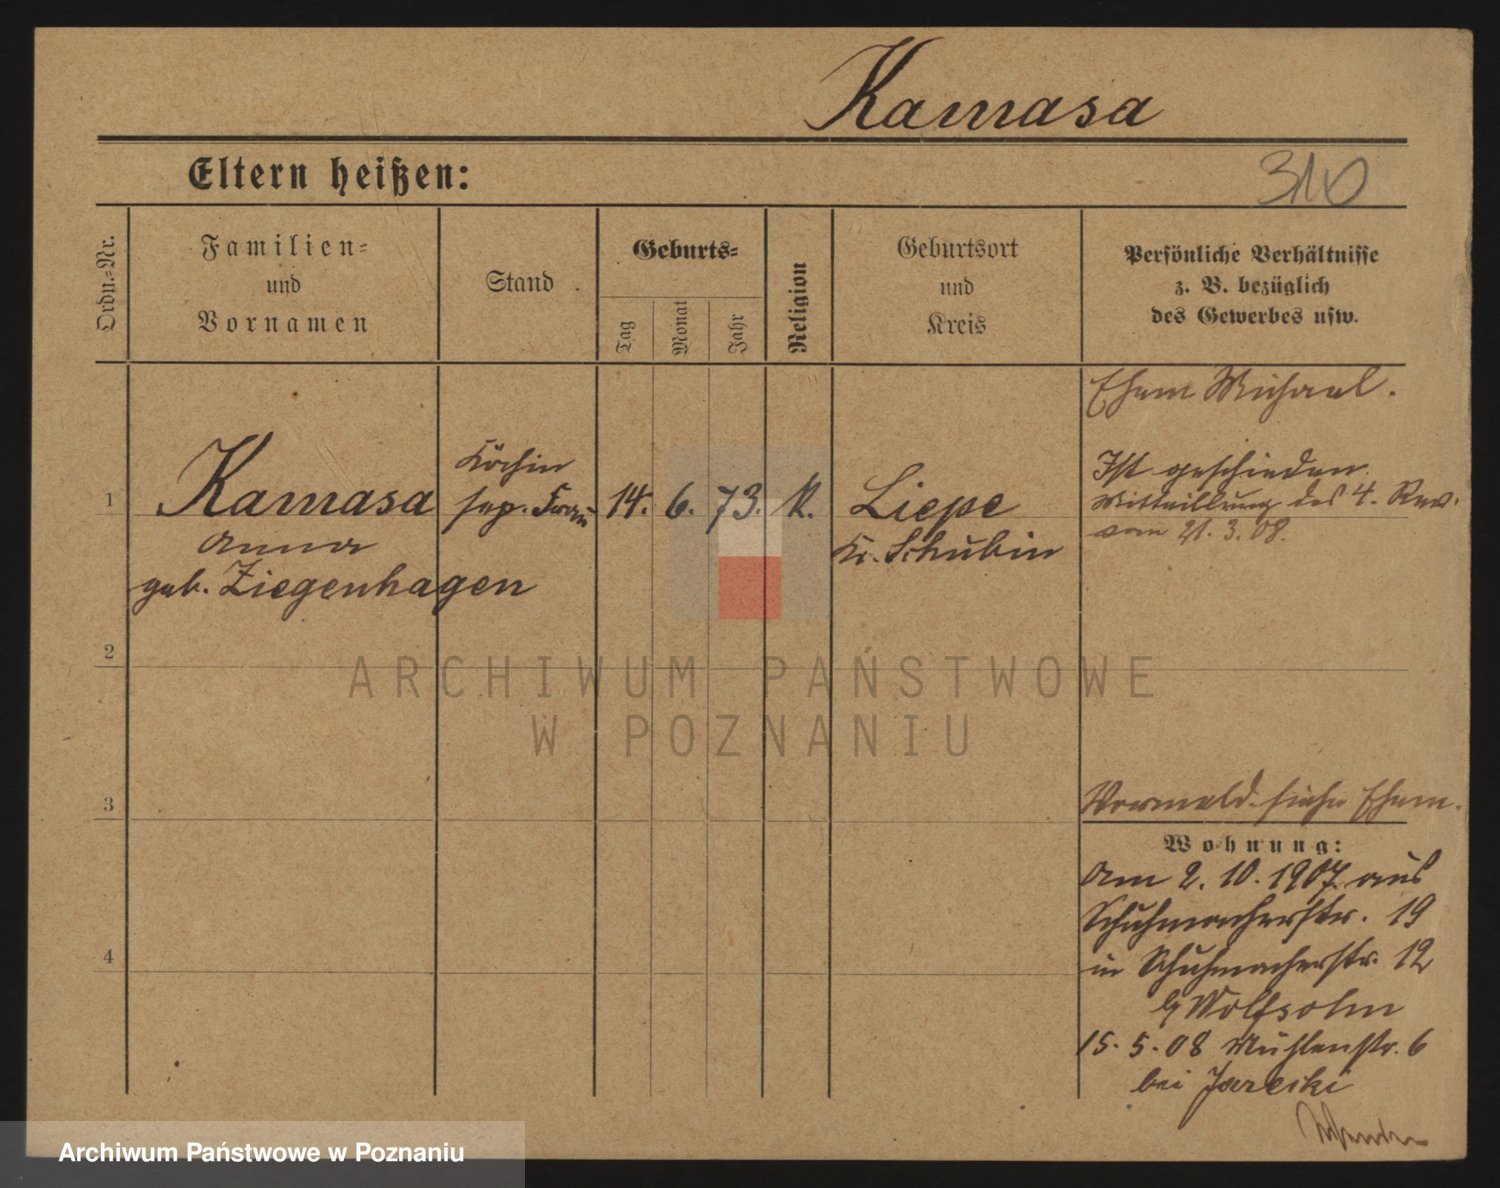 Kamasa
Eltern heißen:
310
Ordn.-Nr.
Familien-
und
Vornamen
Stand
Geburts-
Tag
Monat
Jahr
Religion
Geburtsort
und
Kreis
Persönliche Verhältnisse
z. B. bezüglich
des Gewerbes usw.
Ehem Michael.
1
Kamasa
Anna
geb. Ziegenhagen
Köchin
sep. Frau
14. 6. 73. K.
Liepe
Kr. Schubin
Ist geschieden
Mitteillung des 4. Rev.
vom 21. 3. 08.
2
3
4
ARCHIWUM PAŃSTWOWE
W POZNANIU
siehe Ehem.
Wohnung:
Am 2. 10. 1907. aus
Schuhmacherstr. 19
in Schuhmacherstr. 12
b/ Wolfsohn
15. 5. 08 Mühlenstr. 6
bei Jarecki
Archiwum Państwowe w Poznaniu